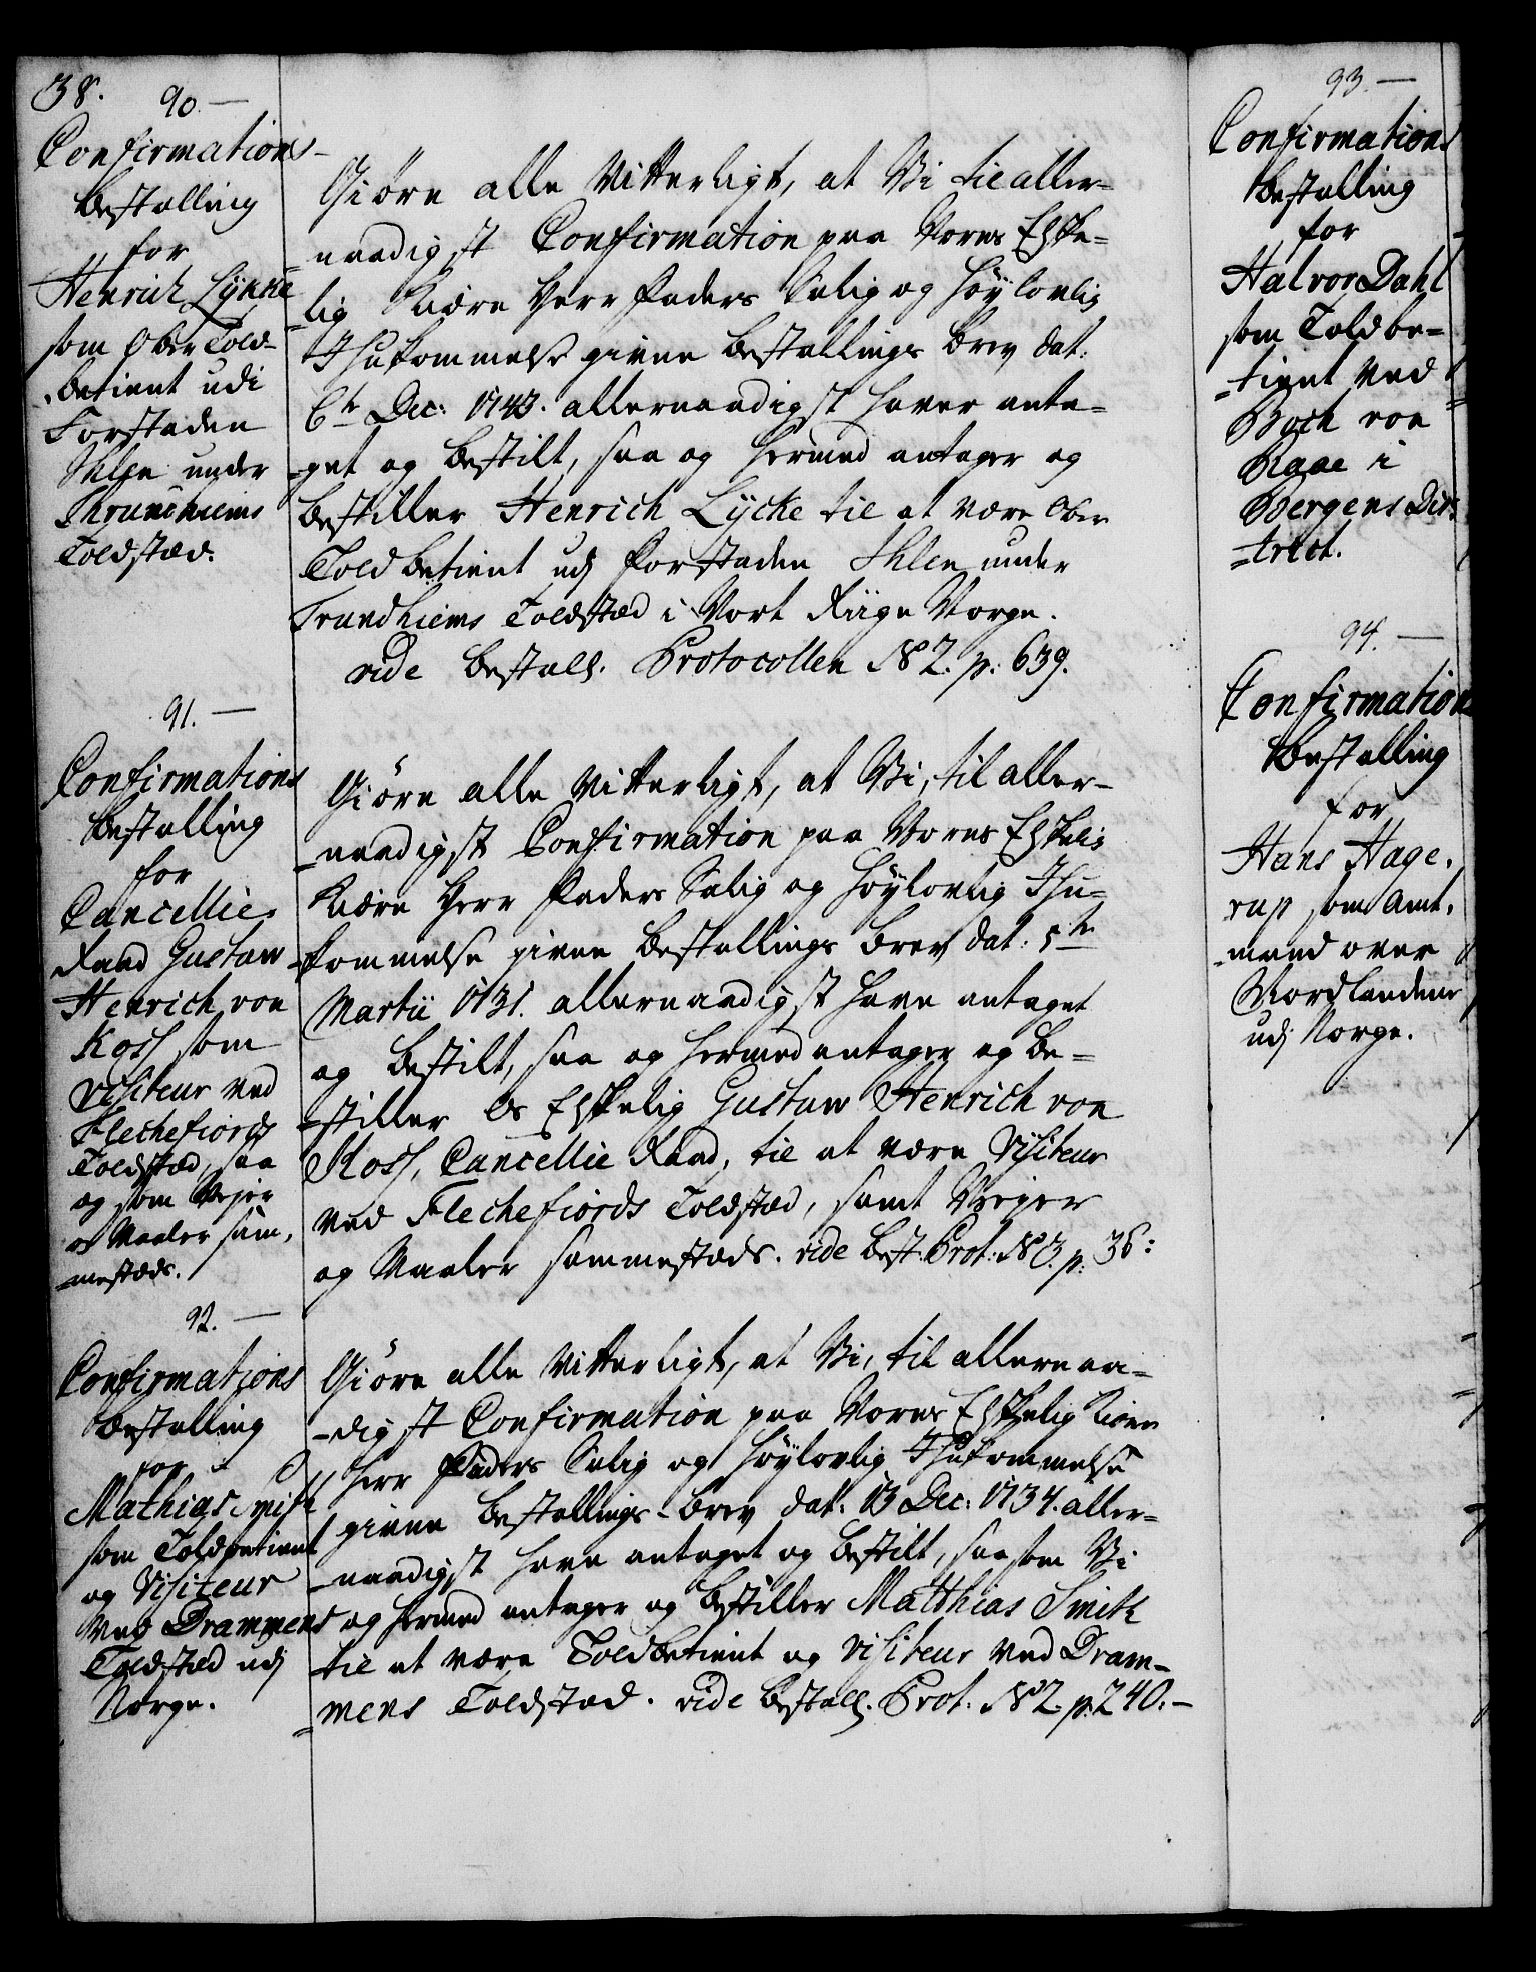 38.
90.
Confirmations-
bestalling
for
Henrich Lykke
som Ober Told-
betient udi
Forstaden
Ihlen under
Thrundhiems
Toldstæd.
Giøre alle Vitterligt, at Vi til aller-
naadigst Confirmation paa Vores Elske-
lig Kiære Herr Faders Salig og Høylovlig
Ihukommelse givne Bestallings Brev dat:
6te Dec: 1743. allernaadigst haver anta-
get og bestilt, saa og hermed antager og
bestiller Henrich Lycke til at være Ober
Toldbetient udj Forstaden Ihlen under
Trundhiems Toldstæd i Vort Riige Norge.
vide bestall. Protocollen No 2. p: 639.
91.
Confirmations
bestalling
for
Cancellie
Raad Gustav
Henrich von
Koss som
Visiteur ved
Flechefiords
Toldstæd, saa
og som Vejer
og Maaler sam-
mestæds.
Giøre alle Vitterligt, at Vi, til aller-
naadigst Confirmation paa Vores Elskelig
Kiære Herr Faders Salig og Høylovlig Ihu-
kommelse givne Bestallings Brev dat: 5te
Martii 1731. allernaadigst have antaget
og bestilt, saa og hermed antager og be-
stiller Os Elskelig Gustav Henrich von
Koss, Cancellie Raad, til at være Visiteur
ved Flechefiords Toldstæd, samt Vejer
og Maaler sammestæds. vide Best. Prot: No 3. p: 36:
92.
Confirmations
bestalling
for
Mathias Smith
som Toldbetient
og Visiteur
ved Drammens
Toldstæd udj
Norge.
Giøre alle Vitterligt, at Vi, til allernaa-
digst Confirmation paa Vores Elskelig Kiære
Herr Faders Salig og Høylovlig Ihukommelse
givne Bestallings-Brev dat: 13 Dec: 1734. aller-
naadigst have antaget og bestilt, saasom Vi
og hermed antager og bestiller Matthias Smith
til at være Toldbetient og Visiteur ved Dram-
mens Toldstæd. vide Bestall. Prot. No 2. p. 240.
93.
Confirmations
bestalling
for
Halvor Dahl
som Toldbe-
tient ved
Boch von
Raae i
Bergens Dis-
trict.
94.
Confirmations
Bestalling
for
Hans Hage-
rup som Amt-
mand over
Nordlandene
udj Norge.